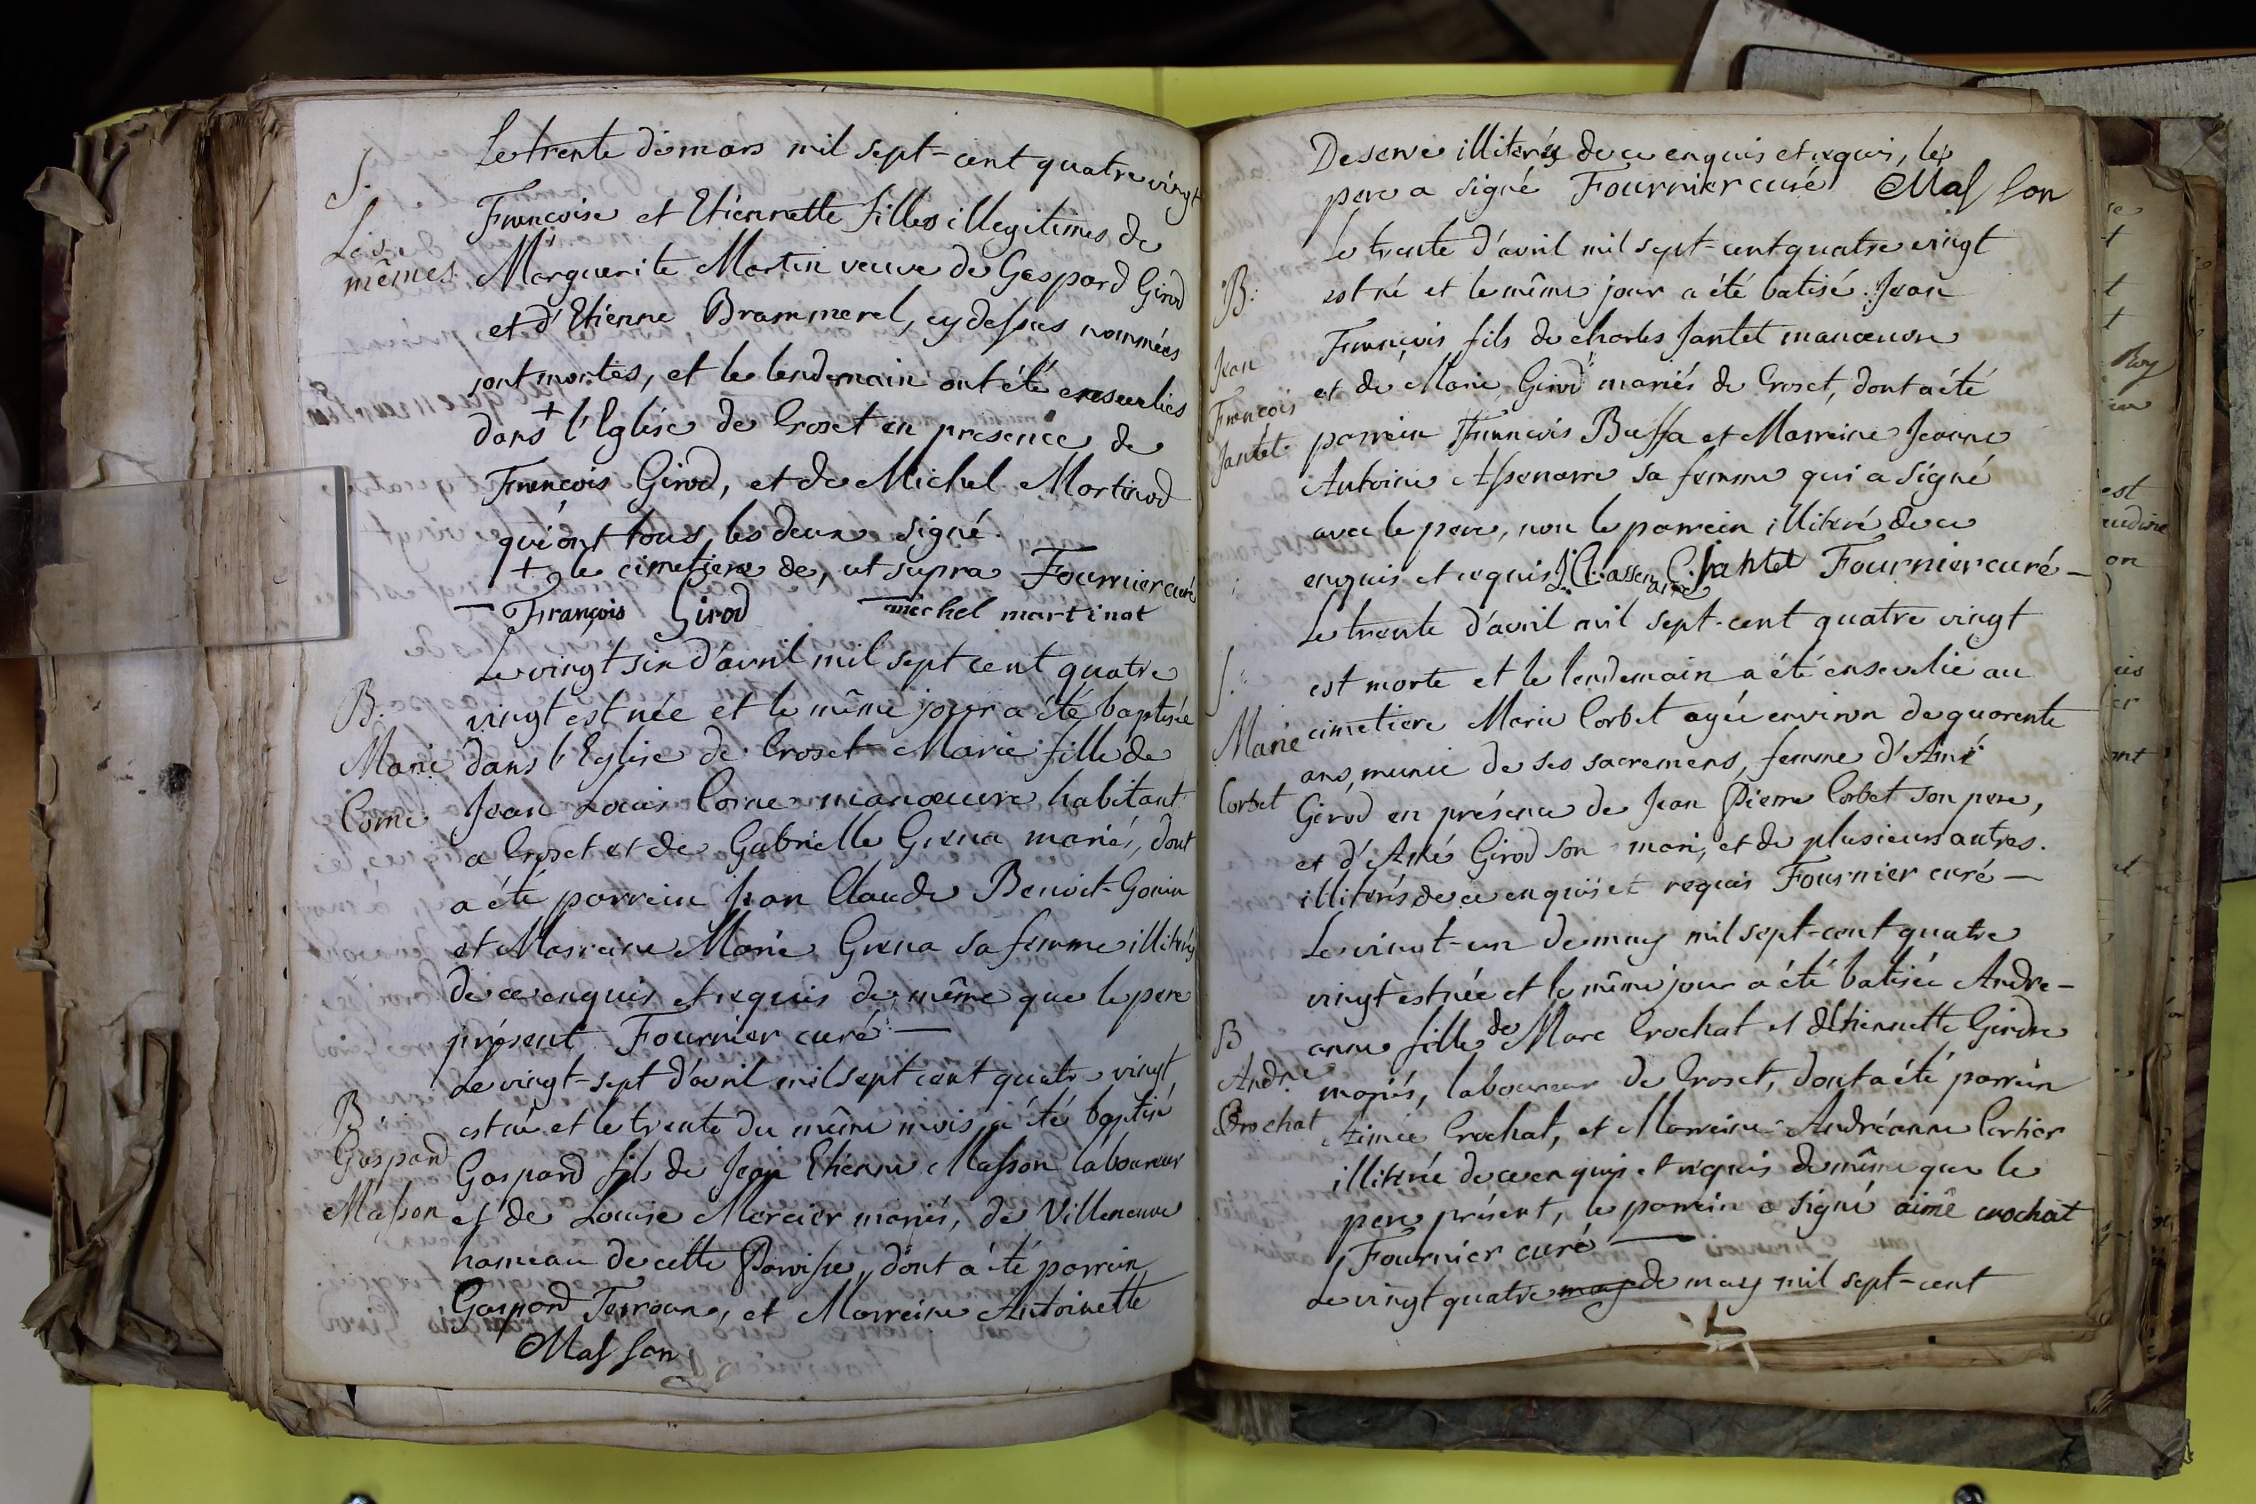 Le trente de mars mil sept-cent quatre vingt
S.
Francoise et Etiennette filles illegitimes de
Les
mêmes.
Marguerite Martin veuve de Gaspard Girod
et d'Etienne Brammerel, cy dessus nommées
sont mortes, et le lendemain ont été ensevelies
dans + l'Eglise de Croset en presence de
François Girod, et de Michel Martinod
qui ont tous les deux signé.
+ le cimetiere de, ut supra Fournier curé
François Girod michel martinot
Le vingt six d'avril mil sept cent quatre
B.
vingt est née et le même jour a été baptisée
Marie
dans l'Eglise de Croset Marie fille de
Corne
Jean Louis Corne manoeuvre habitant
a Croset et de Gabrielle Grena mariés, dont
a été parrein Jean Claude Benoit-Gonin
et Marreine Marie Grena sa femme illiterés
de ce enquis et requis de même que le pere
présent Fournier curé
Le vingt-sept d'avril mil sept cent quatre vingt
B.
est né et le trente du même mois a été baptisé
Gaspard
Gaspard fils de Jean Etienne Masson laboureur
Masson
et de Louise Mercier mariés, de Villeneuve
hameau de cette Paroisse, dont a été parrein
Gaspard et Marreine Antoinette
Masson
Deserve illiterés de ce enquis et requis, le
pere a signé Fournier curé Masson
Le trente d'avril mil sept-cent quatre vingt
B.
est né et le même jour a été batisé Jean
Jean
François
Jantet
François fils de charles Jantet manoeuvre
et de Marie Girod mariés de Croset, dont a été
parrein François Buffa et Marreine Jeanne
Antoine sa femme qui a signé
avec le pere, non le parrein illiteré de ce
enquis et requis C. jantet Fournier curé
Le trente d'avril mil sept-cent quatre vingt
S.
est morte et le lendemain a été ensevelie au
Marie
cimetiere Marie Corbet agée environ de quarente
Corbet
ans, munie de ses sacremens, femme d'Amé
Girod en présence de Jean Pierre Corbet son pere,
et d'Amé Girod son mari, et de plusieurs autres.
illiterés de ce enquis et requis Fournier curé
Le vingt-un de may mil sept-cent quatre
vingt est née et le même jour a été batisée Andre-
B
anne fille de Marc Crochat et d'Etiennette Girdre
Andre
Crochat
mariés, laboureur de Croset, dont a été parrein
Aimé Crochat, et Marreine Andréanne Cartier
illiterée de ce enquis et requis de même que le
pere présent, le parrein a signé aimé crochat
Fournier curé
Le vingt quatre may de may mil sept-cent